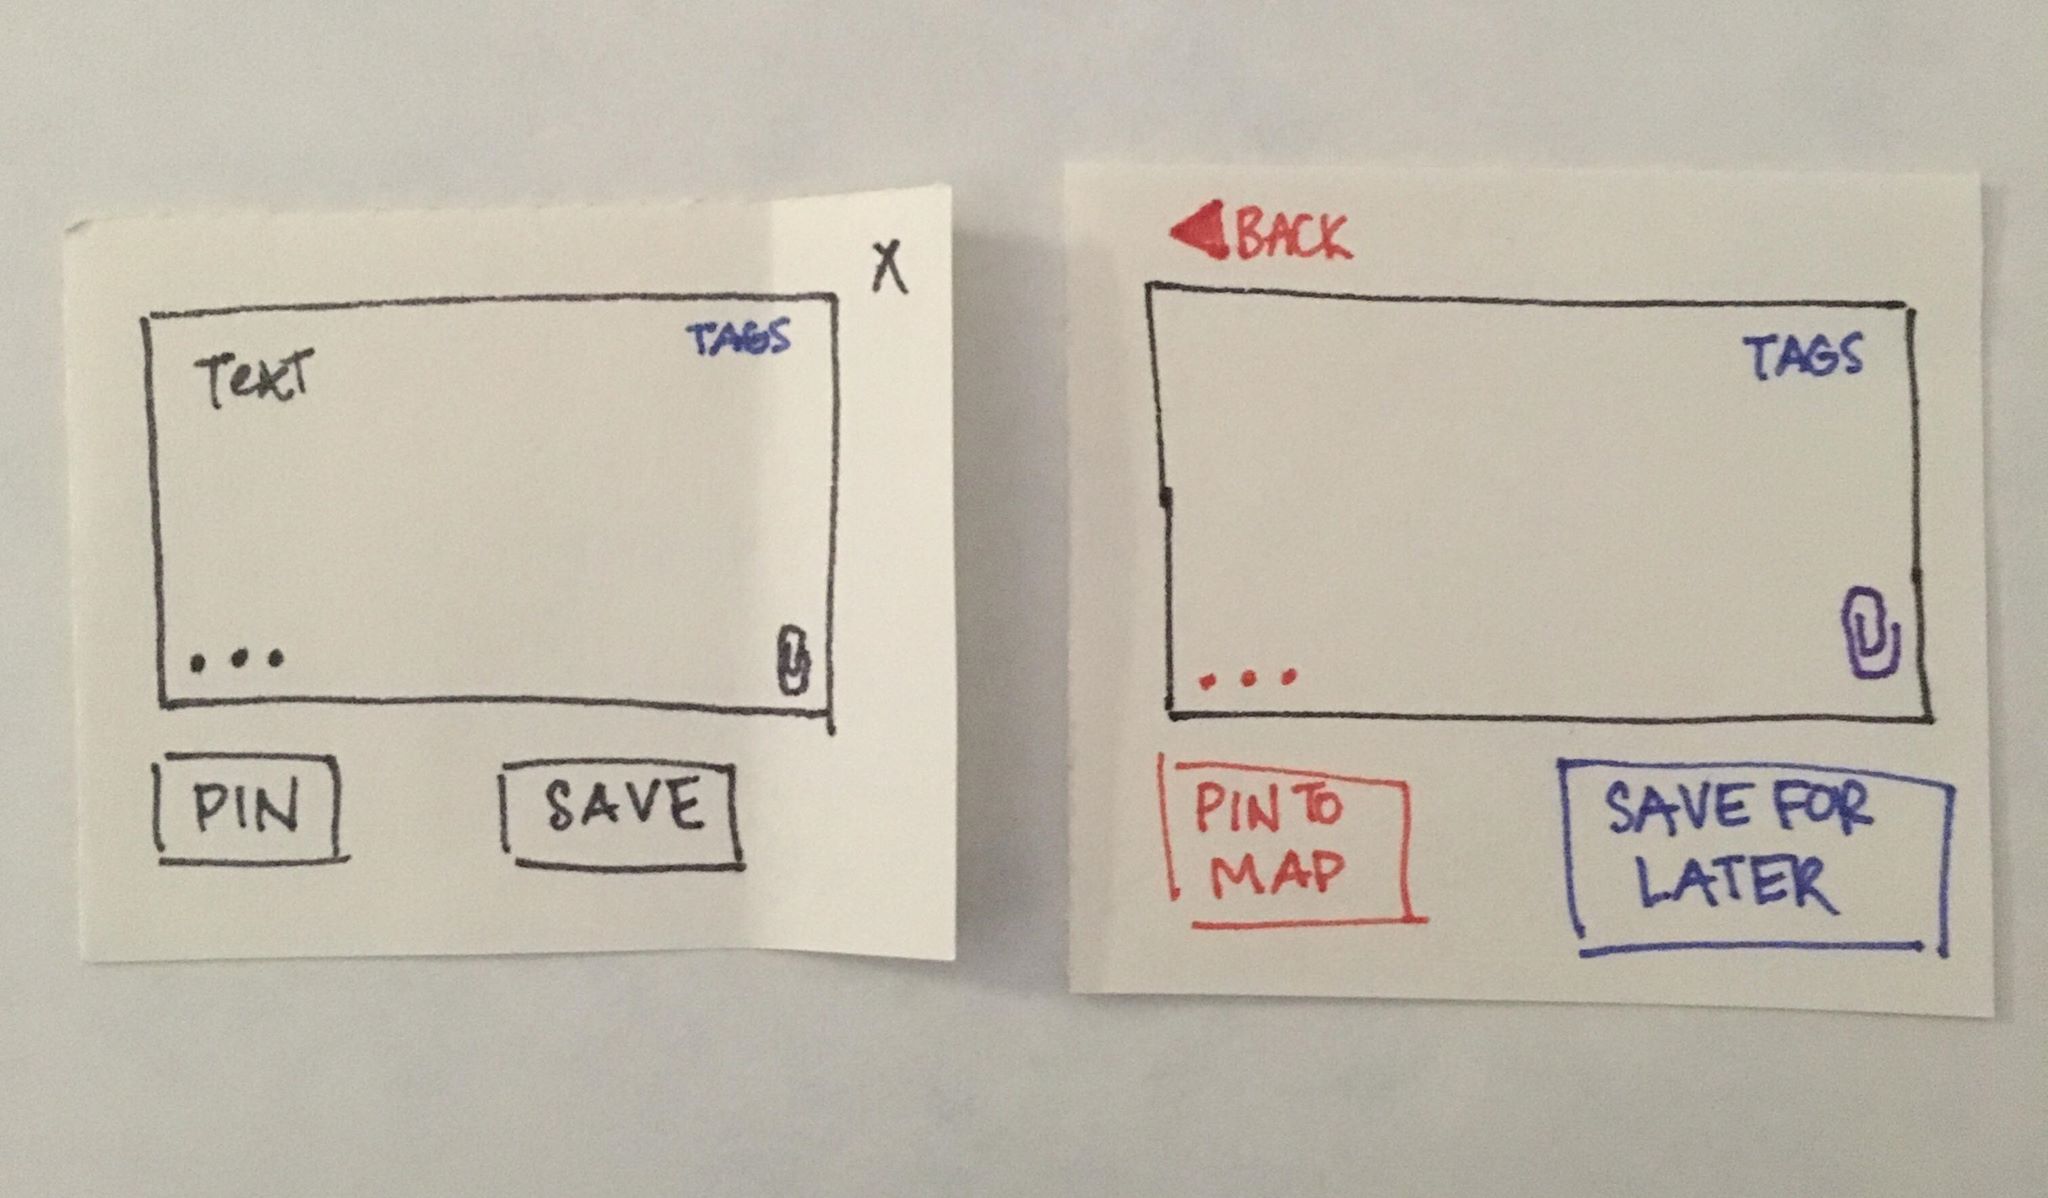 X
TexT
TAGS
...
PIN
SAVE
BACK
TAGS
...
PIN TO
MAP
SAVE FOR
LATER